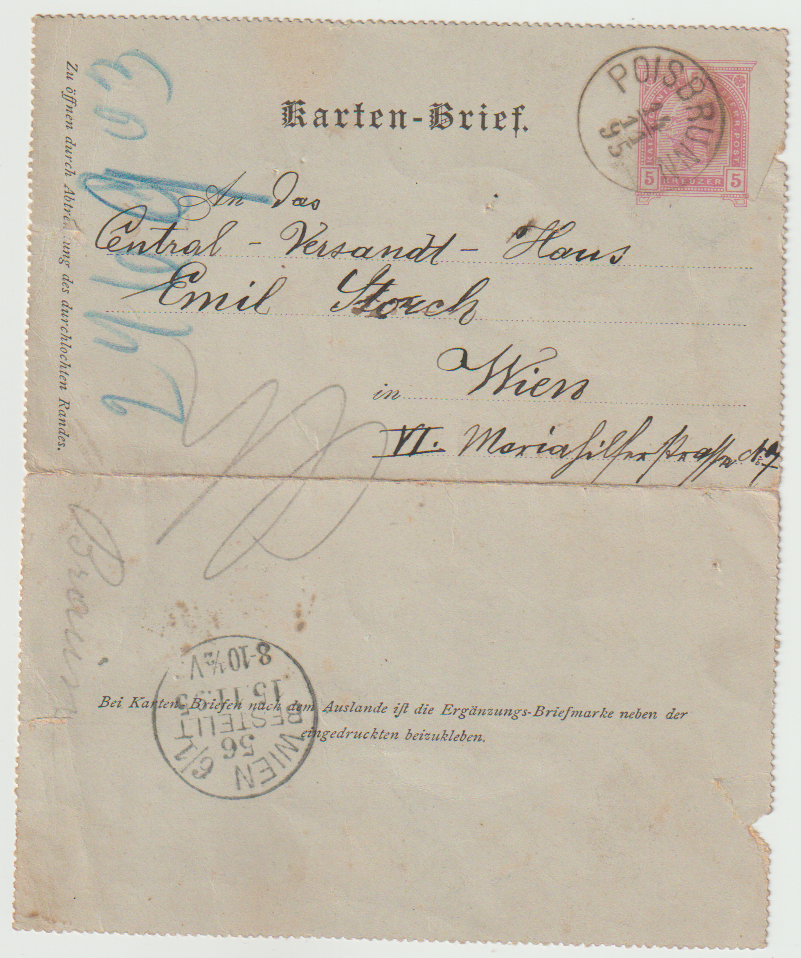 Karten-Brief.
POISBRUNN
14
11
95
5 KREUZER 5
An das
Central - Versandt - Haus
Emil Storch
in Wien
VI. Mariahilferstrasse No 7
Zu öffnen durch Abtrennung des durchlochten Randes.
Braun
Bei Karten-Briefen nach dem Auslande ist die Ergänzungs-Briefmarke neben der
eingedruckten beizukleben.
WIEN 6/1
56
BESTELLT
15.11.95
8-10½V